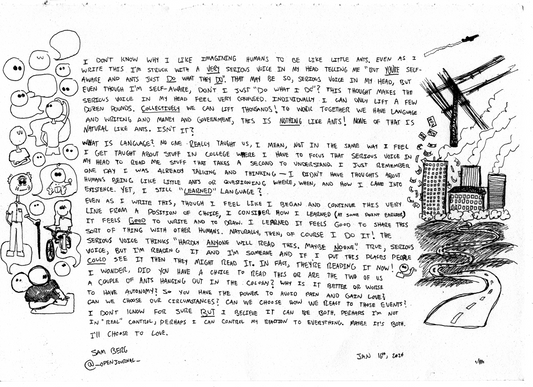 I DON'T KNOW WHY I LIKE IMAGINING HUMANS TO BE LIKE LITTLE ANTS. EVEN AS I
WRITE THIS I'M STRUCK WITH A VERY SERIOUS VOICE IN MY HEAD TELLING ME "BUT YOU'RE SELF-
AWARE AND ANTS JUST DO WHAT THEY DO". THAT MAY BE SO, SERIOUS VOICE IN MY HEAD, BUT
EVEN THOUGH I'M SELF-AWARE, DON'T I JUST "DO WHAT I DO"? THIS THOUGHT MAKES THE
SERIOUS VOICE IN MY HEAD FEEL VERY OFFENDED. INDIVIDUALLY I CAN ONLY LIFT A FEW
DOZEN POUNDS. COLLECTIVELY WE CAN LIFT THOUSANDS! TO WORK TOGETHER WE HAVE LANGUAGE
AND WRITING AND MONEY AND GOVERNMENT, THIS IS NOTHING LIKE ANTS! NONE OF THAT IS
NATURAL LIKE ANTS. ISN'T IT?
WHAT IS LANGUAGE? NO ONE REALLY TAUGHT US, I MEAN, NOT IN THE SAME WAY I FEEL
I GET TAUGHT ABOUT STUFF IN COLLEGE WHERE I HAVE TO FOCUS THAT SERIOUS VOICE IN
MY HEAD TO READ ME STUFF THAT TAKES A SECOND TO UNDERSTAND. I JUST REMEMBER
ONE DAY I WAS ALREADY TALKING AND THINKING — I DIDN'T HAVE THOUGHTS ABOUT
HUMANS BEING LIKE LITTLE ANTS OR QUESTIONING WHERE, WHEN, AND HOW I CAME INTO
EXISTENCE. YET, I STILL "LEARNED" LANGUAGE?
EVEN AS I WRITE THIS, THOUGH I FEEL LIKE I BEGAN AND CONTINUE THIS VERY
LINE FROM A POSITION OF CHOICE, I CONSIDER HOW I LEARNED (AT SOME POINT EARLIER)
IT FEELS GOOD TO WRITE AND TO DRAW. I LEARNED IT FEELS GOOD TO SHARE THIS
SORT OF THING WITH OTHER HUMANS. NATURALLY, THEN, OF COURSE I DO IT! THE
SERIOUS VOICE THINKS "HARDLY ANYONE WILL READ THIS, MAYBE NO ONE". TRUE, SERIOUS
VOICE, BUT I'M READING IT AND I'M SOMEONE AND IF I PUT THIS PLACES PEOPLE
COULD SEE IT THEN THEY MIGHT READ IT. IN FACT, THEY'RE READING IT NOW!
I WONDER, DID YOU HAVE A CHOICE TO READ THIS OR ARE THE TWO OF US
A COUPLE OF ANTS HANGING OUT IN THE COLONY? WHY IS IT BETTER OR WORSE
TO HAVE AUTONOMY? SO YOU HAVE THE POWER TO AVOID PAIN AND GAIN LOVE?
CAN WE CHOOSE OUR CIRCUMSTANCES? CAN WE CHOOSE HOW WE REACT TO THOSE EVENTS?
I DON'T KNOW FOR SURE BUT I BELIEVE IT CAN BE BOTH. PERHAPS I'M NOT
IN "REAL" CONTROL, PERHAPS I CAN CONTROL MY REACTION TO EVERYTHING. MAYBE IT'S BOTH.
I'LL CHOOSE TO LOVE.
SAM BERG
@_OPENJOURNAL_
JAN 10TH, 2024